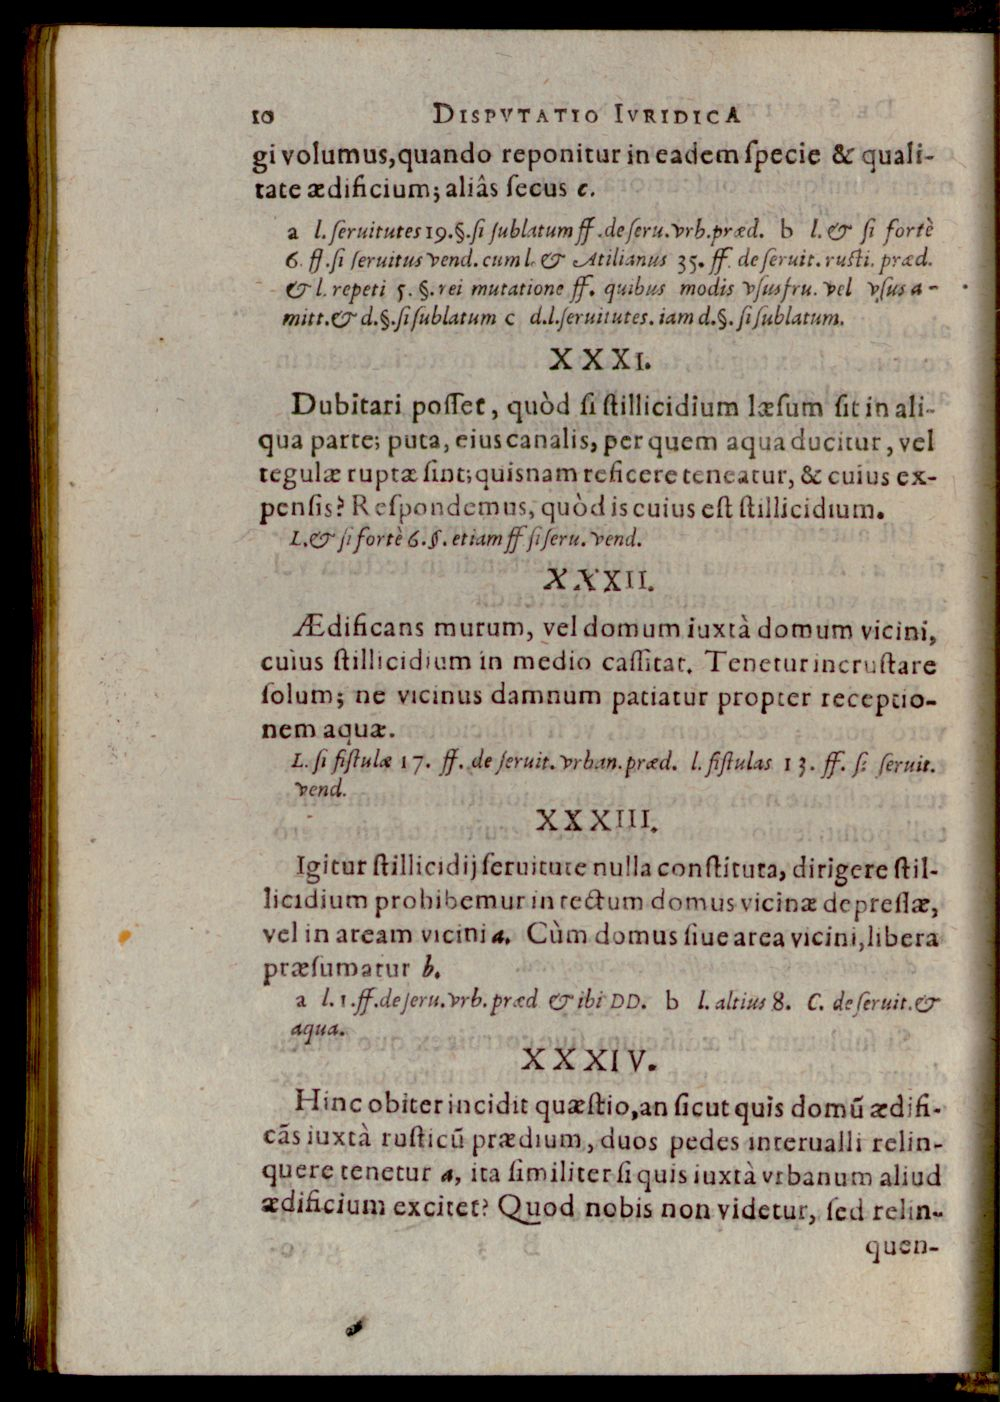 10 DISPVTATIO IVRIDICA
gi volumus, quando reponitur in eadem ſpecie & quali-
tate ædificium; aliâs ſecus c.
a l. ſeruitutes 19. §. ſi ſublatum ff. de ſeru. vrb. præd. b l. & ſi fortè
6. ff. ſi ſeruitus vend. cum l. & Atilianus 35. ff. de ſeruit. ruſti. præd.
& l. repeti 5. §. rei mutatione ff. quibus modis vſusfru. vel vſus a-
mitt. & d. §. ſi ſublatum c d. l. ſeruitutes. iam d. §. ſi ſublatum.
XXXI.
Dubitari poſſet, quòd ſi ſtillicidium læſum ſit in ali-
qua parte; puta, eius canalis, per quem aqua ducitur, vel
tegulæ ruptæ ſint; quisnam reficere teneatur, & cuius ex-
penſis? Reſpondemus, quòd is cuius eſt ſtillicidium.
L. & ſi fortè 6. §. etiam ff ſi ſeru. vend.
XXXII.
Ædificans murum, vel domum iuxtà domum vicini,
cuius ſtillicidium in medio caſſitat. Tenetur incruſtare
ſolum; ne vicinus damnum patiatur propter receptio-
nem aquæ.
L. ſi fiſtulæ 17. ff. de ſeruit. vrban. præd. l. fiſtulas 13. ff. ſi ſeruit.
vend.
XXXIII.
Igitur ſtillicidij ſeruitute nulla conſtituta, dirigere ſtil-
licidium prohibemur in tectum domus vicinæ depreſſæ,
vel in aream vicini a. Cùm domus ſiue area vicini, libera
præſumatur b.
a l. 1. ff. de ſeru. vrb. præd & ibi DD. b l. altius 8. C. de ſeruit. &
aqua.
XXXIV.
Hinc obiter incidit quæſtio, an ſicut quis domũ ædifi-
cãs iuxtà ruſticũ prædium, duos pedes interualli relin-
quere tenetur a, ita ſimiliter ſi quis iuxtà vrbanum aliud
ædificium excitet? Quod nobis non videtur, ſed relin-
quen-